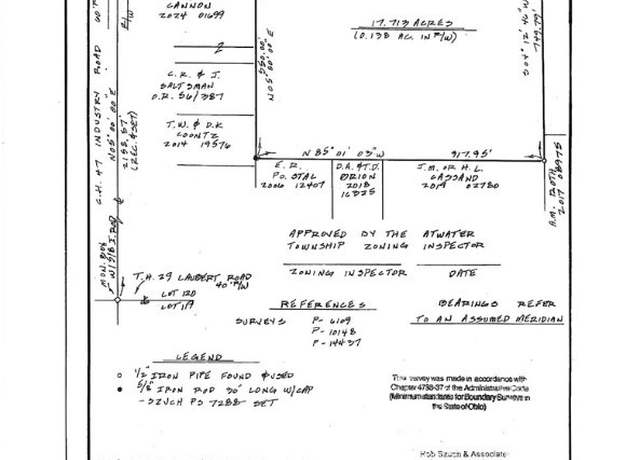 CANNON
2024 01699
17.713 ACRES
(0.138 AC. IN R/W)
S 04° 12' 46" W
749.79'
R/W
C.H. 47 INDUSTRY ROAD
N05° 00' 00" E
2158.57'
(REC. & SET)
550.00'
N05° 00' 00" E
2
C.R. & J.
SALTSMAN
O.R. 56/387
T.W. & D.K
COONTZ
2014 19576
N 85° 01' 03" W 917.95'
E.R.
POSTAL
2006 12407
D.A. & T.D.
ORION
2018
16325
J.M. OR H.L.
CASSANO
2019 02780
A.M. ROTH
2017 08975
APPROVED BY THE ATWATER
TOWNSHIP ZONING INSPECTOR
ZONING INSPECTOR DATE
MON. BOX
W/ 5/8 I. ROD
T.H. 29 LAUBERT ROAD
40' R/W
LOT 120
LOT 119
REFERENCES
SURVEYS P- 6109
P- 10148
P- 14437
BEARINGS REFER
TO AN ASSUMED MERIDIAN
LEGEND
○ 1/2" IRON PIPE FOUND & USED
● 5/8" IRON ROD 30" LONG W/CAP
- SZUCH PS 7288 SET
This survey was made in accordance with
Chapter 4733-37 of the Administrative Code
(Minimum standards for Boundary Surveys in
the State of Ohio)
& Associate